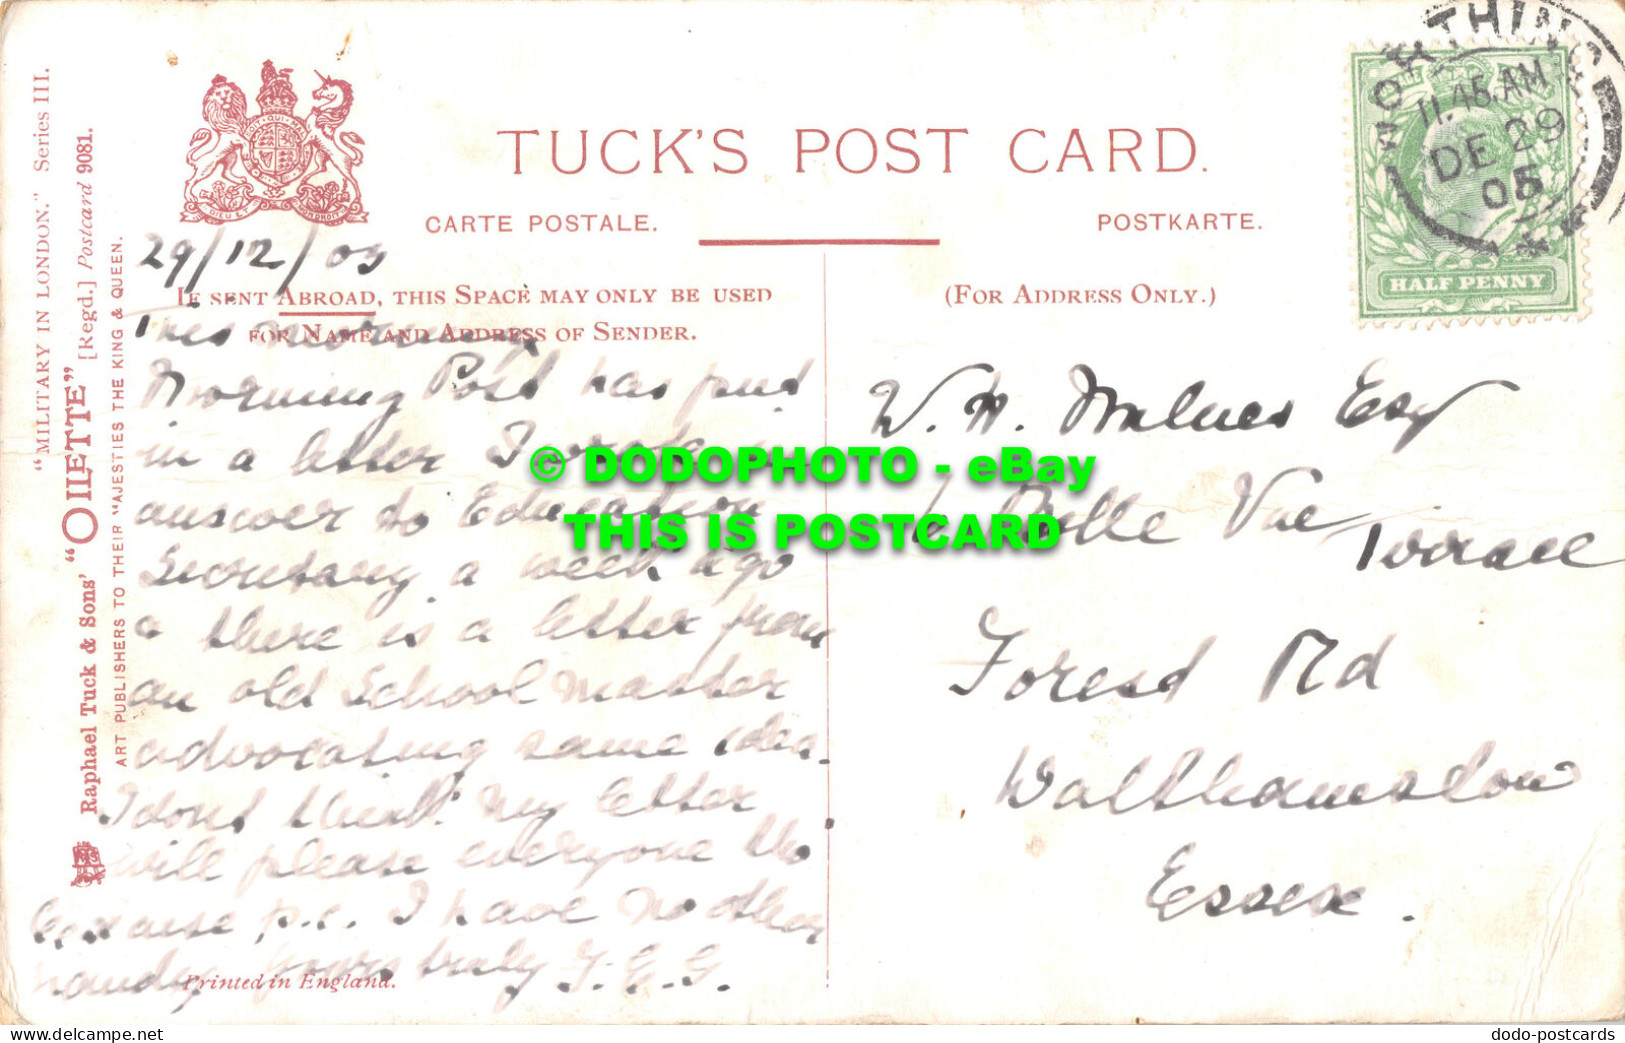 "MILITARY IN LONDON." Series III.
Raphael Tuck & Sons' "OILETTE" [Regd.] Postcard 9081.
ART PUBLISHERS TO THEIR MAJESTIES THE KING & QUEEN.
TUCK'S POST CARD.
CARTE POSTALE.
POSTKARTE.
WORTHING
11.45.AM
DE 29
05
HALF PENNY
29/12/05
IF SENT ABROAD, THIS SPACE MAY ONLY BE USED
FOR NAME AND ADDRESS OF SENDER.
(FOR ADDRESS ONLY.)
This morning
Morning Post has put
in a letter I wrote in
answer to Education
Secretary a week ago
& there is a letter from
an old School master
advocating same idea.
I dont think my letter
will please everyone tho
excuse p.c. I have no other
handy yours truly J.E.G.
W. H. Esqr
6 Belle Vue Terrace
Forest Rd
Walthamstow
Essex.
Printed in England.
© DODOPHOTO - eBay
THIS IS POSTCARD
www.delcampe.net
dodo-postcards